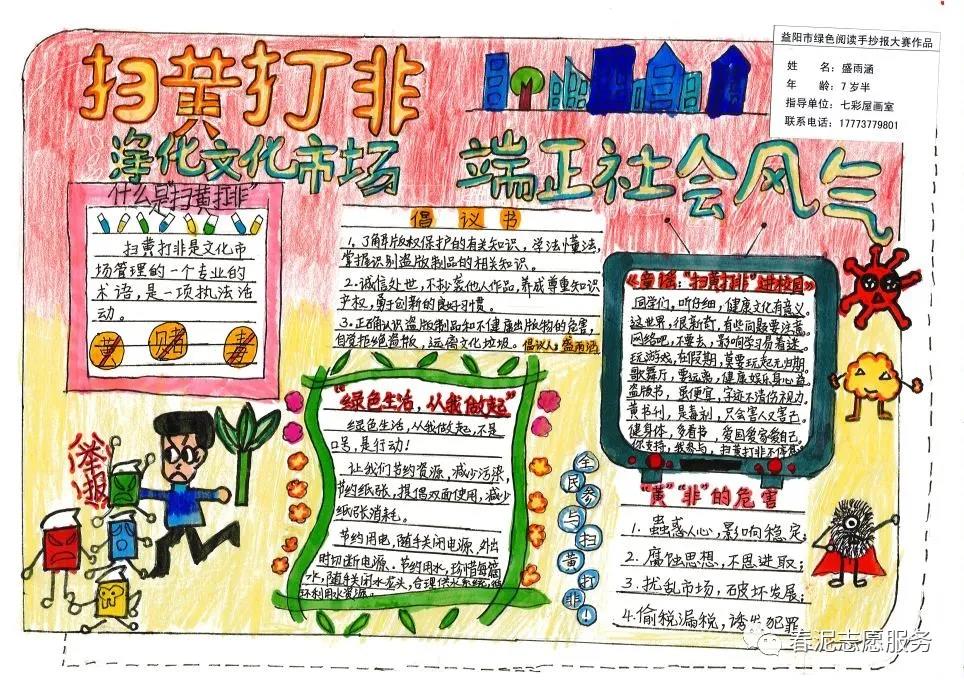 益阳市绿色阅读手抄报大赛作品
姓 名：盛雨涵
年 龄：7岁半
指导单位：七彩屋画室
联系电话：17773779801
扫黄打非
净化文化市场 端正社会风气
什么是"扫黄打非"
扫黄打非是文化市
场管理的一个专业的
术语，是一项执法活
动。
黄 赌 毒
倡议书
1、了解版权保护的有关知识，学法懂法，
掌握识别盗版制品的相关知识。
2.诚信处世，不抄袭他人作品，养成尊重知识
产权，勇于创新的良好习惯。
3.正确认识盗版制品和不健康出版物的危害，
自觉拒绝盗版，远离文化垃圾。倡议人：盛雨涵
《童谣："扫黄打非"进校园》
同学们，听仔细，健康文化有意义。
这世界，很新奇，有些问题要注意。
网络吧，不要去，影响学习易着迷。
玩游戏，在假期，莫要玩起无归期。
歌舞厅，要远离，健康娱乐身心益。
盗版书，虽便宜，字迹不清伤视力。
黄书刊，是毒剂，只会害人又害己。
健身体，多看书，爱国爱家爱自己。
你支持，我参与，扫黄打非不停息。
"绿色生活，从我做起"
绿色生活，从我做起，不是
口号，是行动！
让我们节约资源，减少污染，
节约纸张，提倡双面使用，减少
纸张消耗。
节约用电，随手关闭电源，外出
时切断电源。节约用水，珍惜每滴
水，随手关闭水龙头，合理供水系统，循
环利用水资源。
举报
全民参与扫黄打非！
"黄""非"的危害
1.蛊惑人心，影响稳定；
2.腐蚀思想，不思进取；
3.扰乱市场，破坏发展；
4.偷税漏税，诱发犯罪
春泥志愿服务